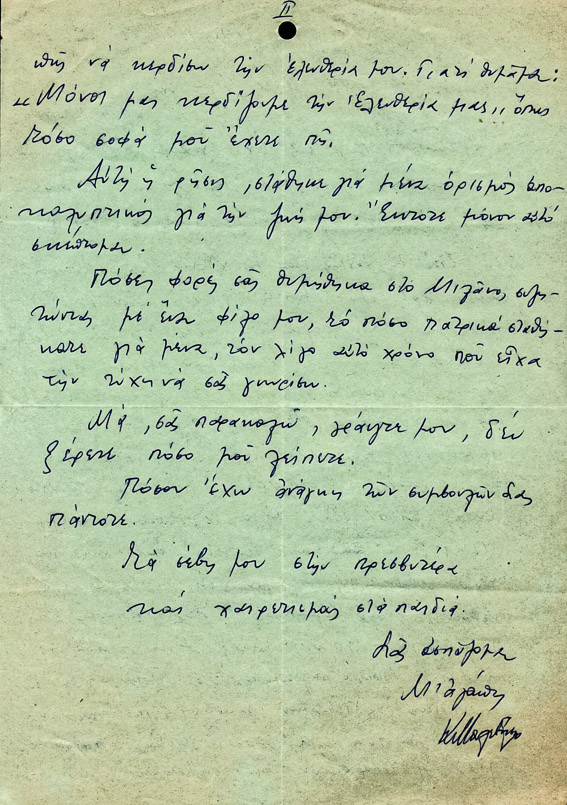 II
πῆς νὰ κερδίσω τὴν ἐλευθερία μου. Γιατὶ θυμᾶμαι:
«Μόνοι μας κερδίζουμε τὴν ἐλευθερία μας,, ὅπως
τόσο σοφὰ μοῦ ἔχετε πῆ.
Αὐτὴ ἡ ρῆσις, στάθηκε γιὰ μένα ὁρισμὸς ἀπο-
καλυπτικὸς γιὰ τὴν ζωή μου. Ἔκτοτε μόνον αὐτὸ
σκέπτομαι.
Πόσες φορὲς σᾶς θυμήθηκα στο Μιλάνο, συζη-
τώντας μὲ ἕνα φίλο μου, τὸ πόσο πατρικὰ σταθή-
κατε γιὰ μένα, τὸν λίγο αὐτὸ χρόνο ποὺ εἶχα
τὴν τύχη νὰ σᾶς γνωρίσω.
Μὰ, σᾶς παρακαλῶ, γράψτε μου, δὲν
ξέρετε πόσο μοῦ λείπετε.
Πόσον ἔχω ἀνάγκη τῶν συμβουλῶν σας
πάντοτε.
Τὰ σέβη μου στὴν πρεσβυτέρα
καὶ χαιρετισμοὺς στὰ παιδιά.
Σᾶς ἀσπάζομαι
Μ' ἀγάπη